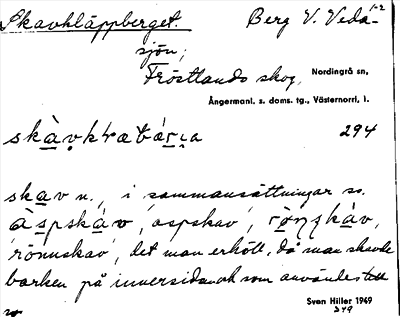 Skavkläppberget. Berg V. Veda- 1-2
sjön;
Fröstlands skog, Nordingrå sn,
Ångermanl. s. doms. tg., Västernorrl. l.
294
skav n., i sammansättningar ss.
àspskàv, 'aspskav', rø̀nskàv,
'rönnskav', det man erhöll, då man skavde
barken på innersidan och som användes till
Sven Hiller 1949